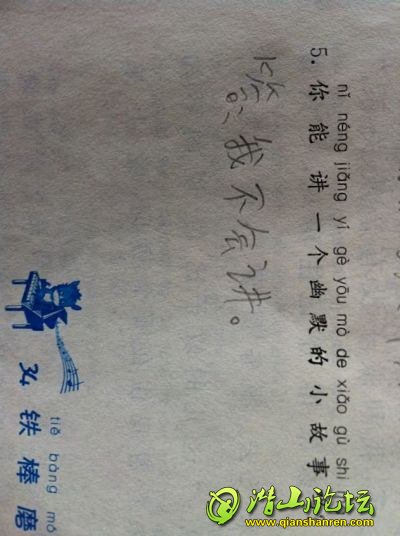 nǐ néng jiǎng yí gè yōu mò de xiǎo gù shi
5. 你能讲一个幽默的小故事
我不会讲。
tiě bàng mó
34 铁棒磨
潜山论坛
www.qianshanren.com